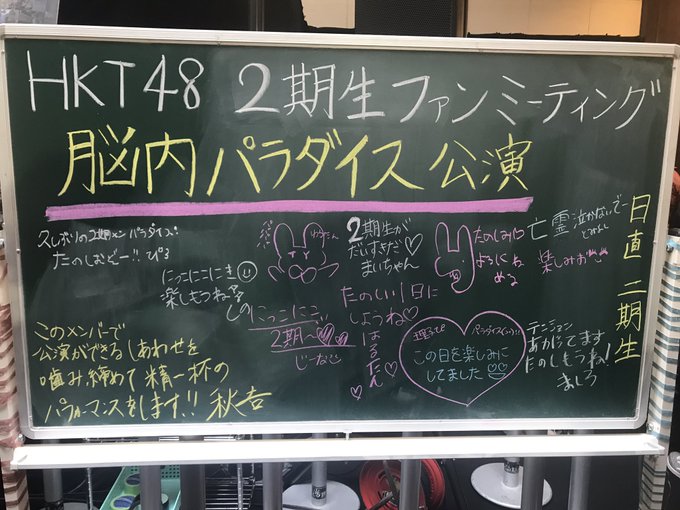 HKT48 2期生 ファンミーティング
脳内パラダイス公演
久しぶりの2期メンパラダイス!
たのしむどー!! ぴろ
にっこにこにき
楽しもうね
しの
このメンバーで
公演ができるしあわせを
噛み締めて精一杯の
パフォーマンスをします!! 秋吉
にっこにこ
2期へ♡♡
じーな
2期生が
だいすきだ♡
まいちゃん
たのしい1日に
しようね♡
はるたん
たのしみに
よろしくね
める
亡霊泣かないでー
とみよし
楽しみお
パラダイス
この日を楽しみに
してました
テンション
あがってます
たのしもうね!
ましろ
日直 二期生